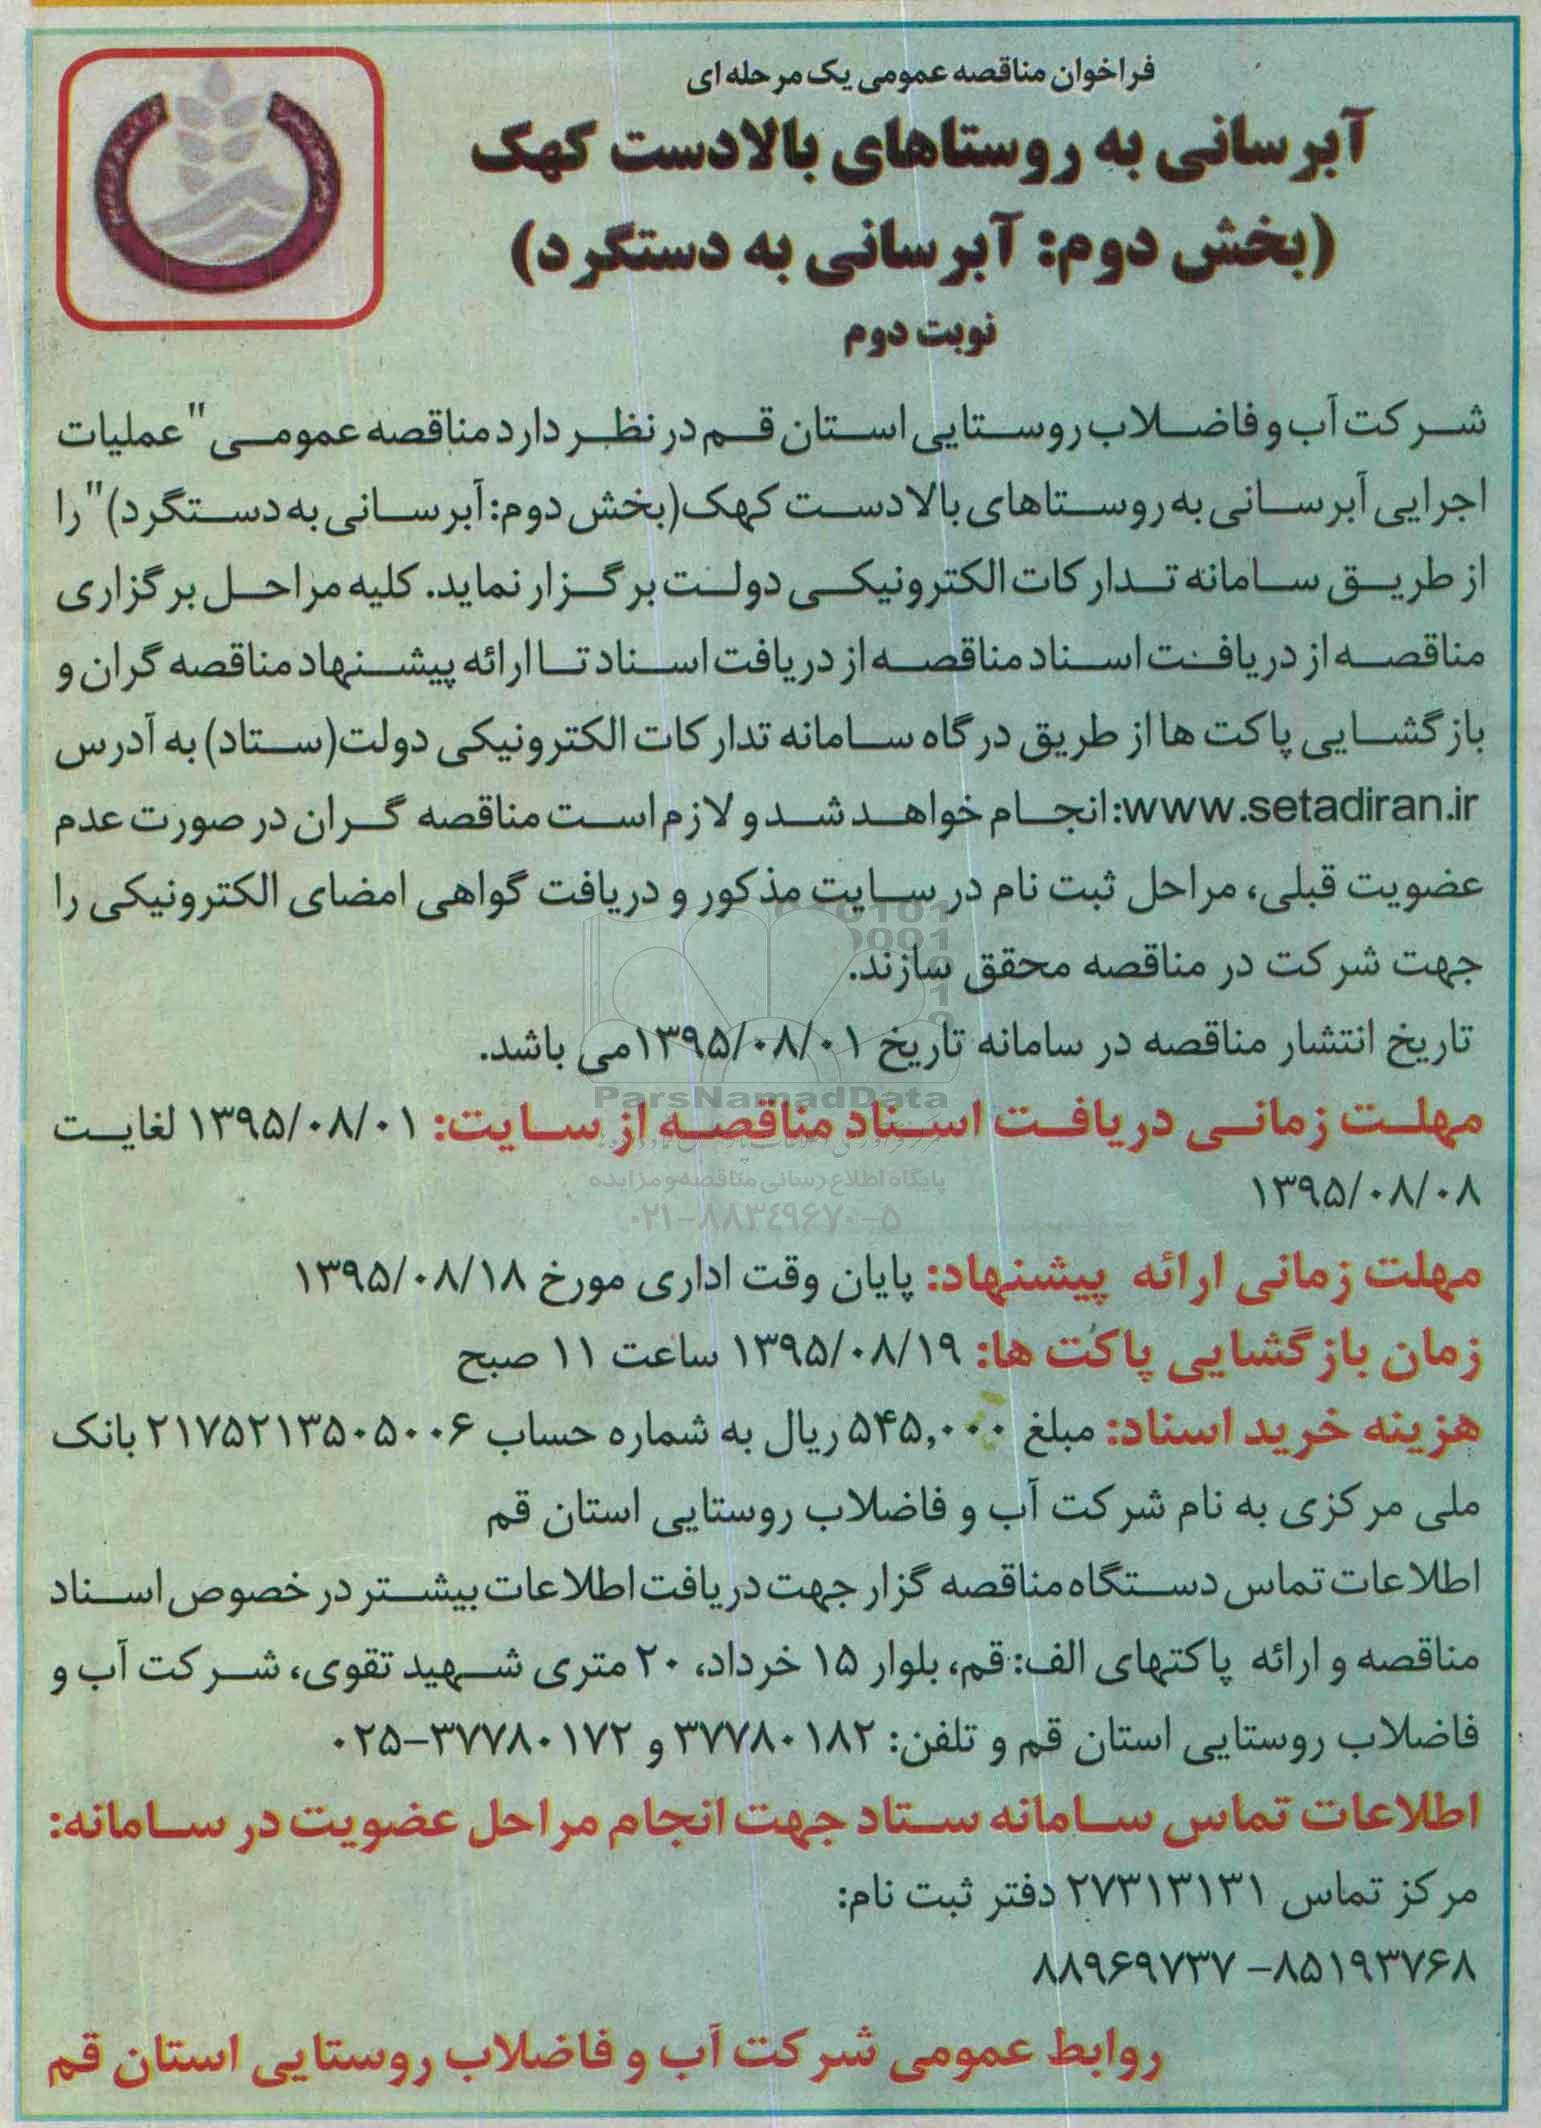 فراخوان مناقصه عمومی یک مرحله ای
آبرسانی به روستاهای بالادست کهک
(بخش دوم: آبرسانی به دستگرد)
نوبت دوم
شرکت آب و فاضلاب روستایی استان قم در نظر دارد مناقصه عمومی "عملیات
اجرایی آبرسانی به روستاهای بالادست کهک(بخش دوم: آبرسانی به دستگرد)" را
از طریق سامانه تدارکات الکترونیکی دولت برگزار نماید. کلیه مراحل برگزاری
مناقصه از دریافت اسناد مناقصه از دریافت اسناد تا ارائه پیشنهاد مناقصه گران و
بازگشایی پاکت ها از طریق درگاه سامانه تدارکات الکترونیکی دولت(ستاد) به آدرس
www.setadiran.ir: انجام خواهد شد و لازم است مناقصه گران در صورت عدم
عضویت قبلی، مراحل ثبت نام در سایت مذکور و دریافت گواهی امضای الکترونیکی را
جهت شرکت در مناقصه محقق سازند.
تاریخ انتشار مناقصه در سامانه تاریخ ۱۳۹۵/۰۸/۰۱ می باشد.
ParsNamadData
مهلت زمانی دریافت اسناد مناقصه از سایت: ۱۳۹۵/۰۸/۰۱ لغایت
پایگاه اطلاع رسانی مناقصه و مزایده
۱۳۹۵/۰۸/۰۸
۰۲۱-۸۸۳۴۹۶۷۰-۵
مهلت زمانی ارائه پیشنهاد: پایان وقت اداری مورخ ۱۳۹۵/۰۸/۱۸
زمان بازگشایی پاکت ها: ۱۳۹۵/۰۸/۱۹ ساعت ۱۱ صبح
هزینه خرید اسناد: مبلغ ۵۴۵,۰۰۰ ریال به شماره حساب ۲۱۷۵۲۱۳۵۰۵۰۰۶ بانک
ملی مرکزی به نام شرکت آب و فاضلاب روستایی استان قم
اطلاعات تماس دستگاه مناقصه گزار جهت دریافت اطلاعات بیشتر در خصوص اسناد
مناقصه و ارائه پاکتهای الف: قم، بلوار ۱۵ خرداد، ۲۰ متری شهید تقوی، شرکت آب و
فاضلاب روستایی استان قم و تلفن: ۳۷۷۸۰۱۸۲ و ۳۷۷۸۰۱۷۲-۰۲۵
اطلاعات تماس سامانه ستاد جهت انجام مراحل عضویت در سامانه:
مرکز تماس ۲۷۳۱۳۱۳۱ دفتر ثبت نام:
۸۸۹۶۹۷۳۷ -۸۵۱۹۳۷۶۸
روابط عمومی شرکت آب و فاضلاب روستایی استان قم